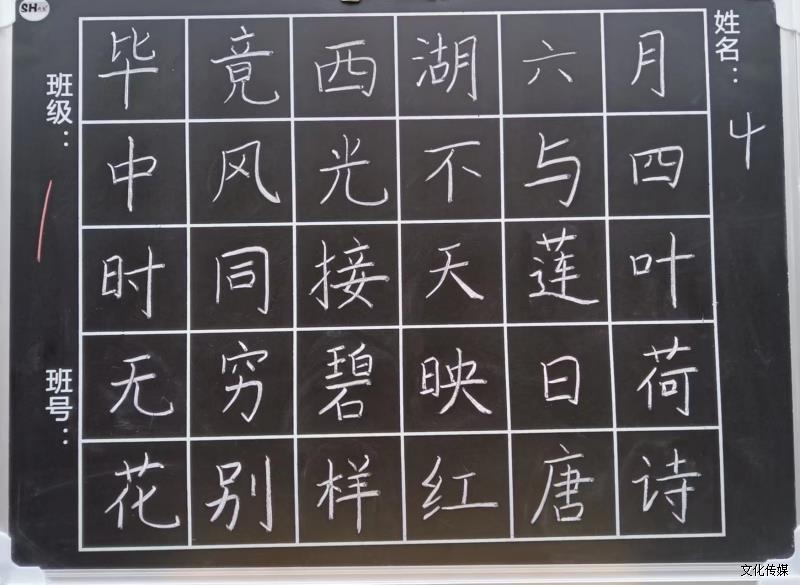 SH
姓名：4
班级：1
班号：
毕竟西湖六月
中风光不与四
时同接天莲叶
无穷碧映日荷
花别样红唐诗
文化传媒